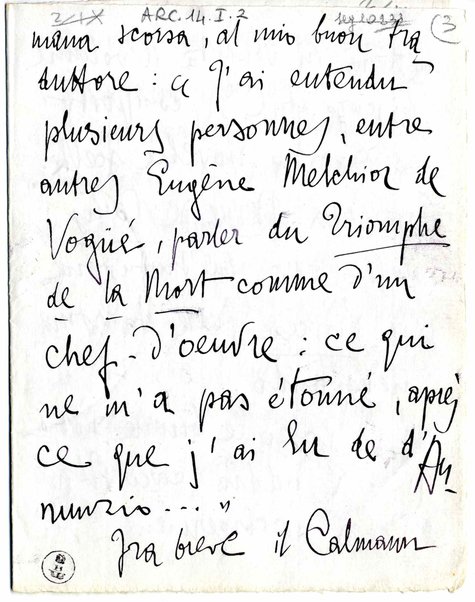 ARC. 14. I. 2
3
mana scorsa, al mio buon tra
duttore: "J'ai entendu
plusieurs personnes, entre
autres Eugêne Melchior de
Vogüé, parler du Triomphe
de la Mort comme d'un
chef-d'oeuvre: ce qui
ne m'a pas étonné, après
ce que j'ai lu de d'An-
nunzio..."
Fra breve il Calmann